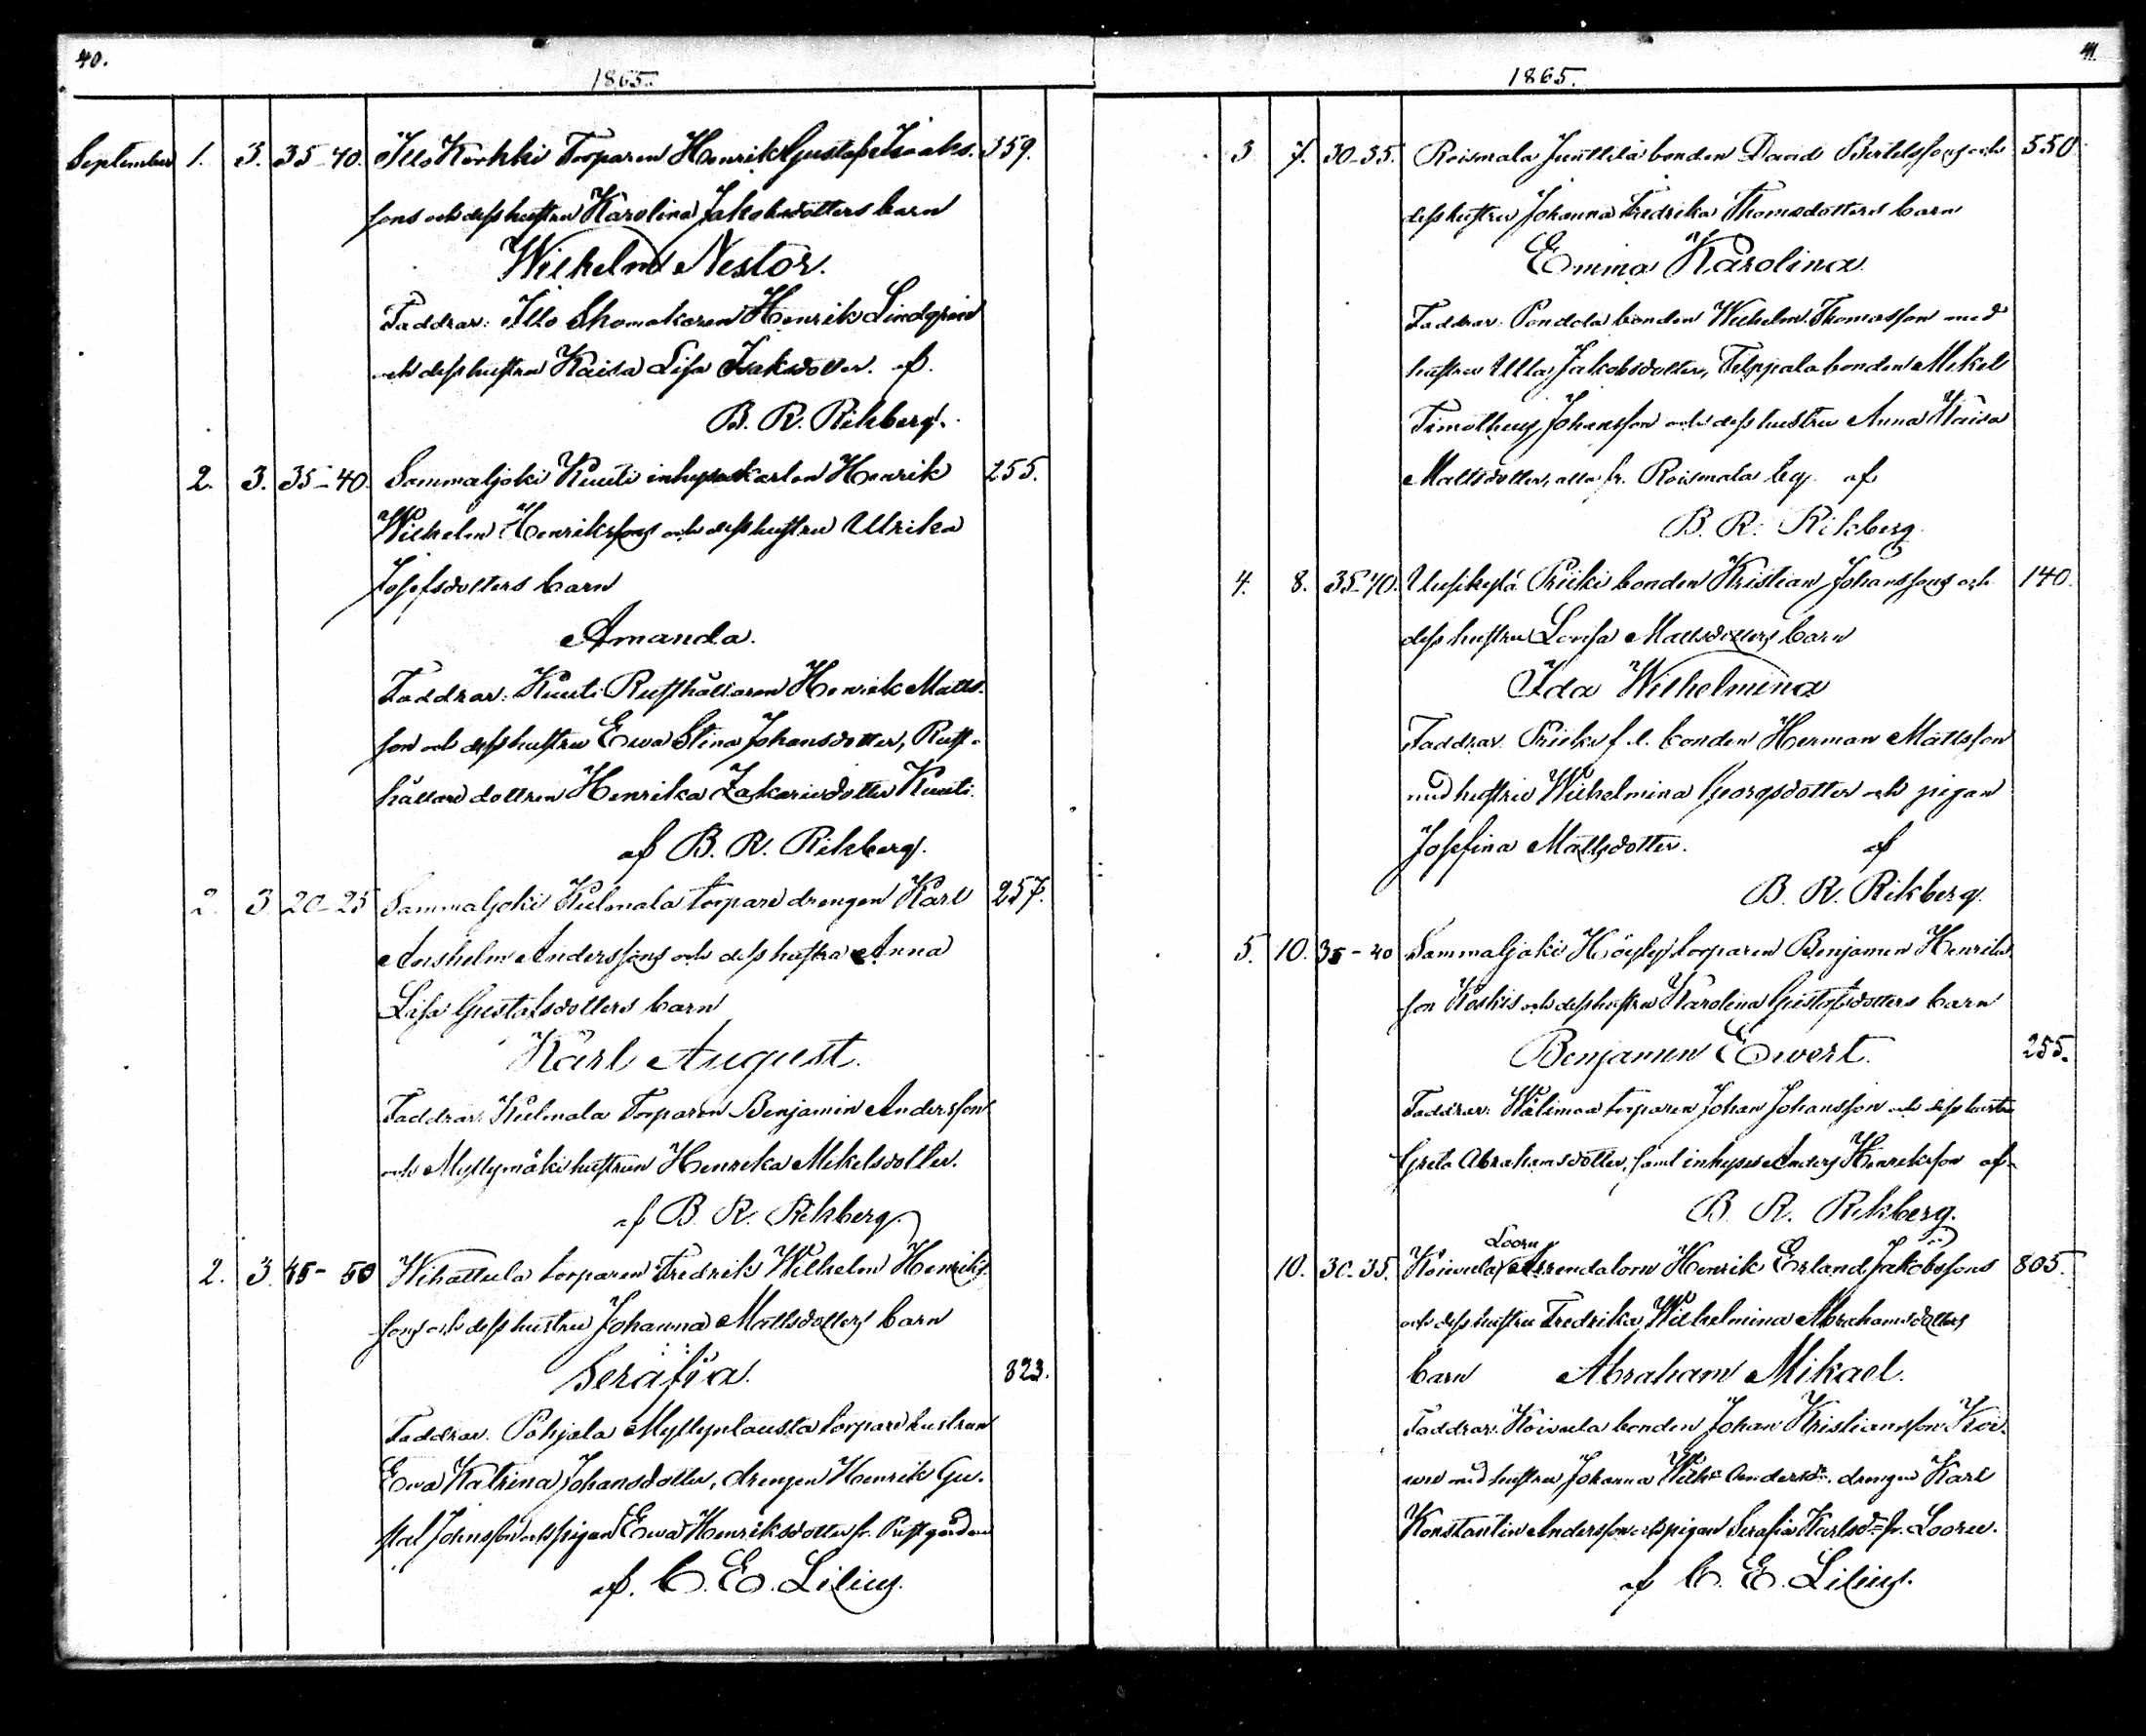 40.
1865.
September 1. 3. 35-40. Illo Korkki Torparen Henrik Gustaf Isaaks- 359.
sons och dess hustru Karolina Jakobsdotters barn
Wilhelm Nestor.
Faddrar: Illo Skomakaren Henrik Lindqvist
och dess hustru Kaisa Lisa Isaksdotter. af.
B. R. Rikberg.
2. 3. 35-40. Sammaljoki Kuuti inhyses karlen Henrik 255.
Wilhelm Henrikssons och dess hustru Ulrika
Josefsdotters barn
Amanda.
Faddrar: Kuuti Rusthållaren Henrik Matts-
son och dess hustru Ewa Stina Johansdotter, Rust-
hållare dottren Henrika Zakariedotter Kuuti.
af B. R. Rikberg.
2. 3. 20-25 Sammaljoki Kulmala torpare drengen Karl 257.
Anshelm Anderssons och dess hustru Anna
Lisa Gustafsdotters barn
Karl August.
Faddrar: Kulmala Torparen Benjamin Andersson
och Myllymäki hustrun Henrika Mikelsdotter.
af B. R. Rikberg.
2. 3. 45-50 Wihattula torparen Fredrik Wilhelm Henriks-
sons och dess hustru Johanna Mattsdotters barn
Serafia. 823.
Faddrar. Pohjala Myllynlausta torpare hustrun
Ewa Katrina Johansdotter, drengen Henrik Gu-
staf Johansson och pigan Ewa Henriksdotter fr.
af. C. E. Lilius.
41.
1865.
3 7. 30-35. Roismala Junttila bonden David Bertelssons och 550.
dess hustru Johanna Fredrika Thomsdotters barn
Emma Karolina.
Faddrar: Pondola bonden Wilhelm Thomasson med
hustru Ulla Jakobsdotter, Filppala bonden Mikel
Timotheus Johansson och dess hustru Anna Kaisa
Mattsdotter, alla fr. Roismala by. af
B. R. Rikberg.
4. 8. 35-40. Uusikylä Priiki bonden Kristian Johanssons och 140.
dess hustru Lovisa Mattsdotters barn
Ida Wilhelmina
Faddrar. Priiki f. d. bonden Herman Mattsson
med hustru Wilhelmina Georgsdotter och pigan
Josefina Mattsdotter. af
B. R. Rikberg.
5. 10. 35-40 Sammaljoki torparen Benjamin Henriks-
son Koskis och dess hustru Karolina Gustafsdotters barn
Benjamin Ewert. 255.
Faddrar: Wälimaa torparen Johan Johansson och dess hustru
Greta Abrahamsdotter, samt inhyses Anders Henriksson af
B. R. Rikberg.
Looru
10. 30-35. Koivula Arrendatorn Henrik Erland Jakobssons 805.
och dess hustru Fredrika Wilhelmina Abrahamsdotters
barn Abraham Mikael.
Faddrar. Koivula bonden Johan Kristiansson Koi-
med hustru Johanna Wilh:a Andersd:r, drengen Karl
Konstantin Andersson och pigan Serafia Karlsd:r fr. Looru.
af C. E. Lilius.